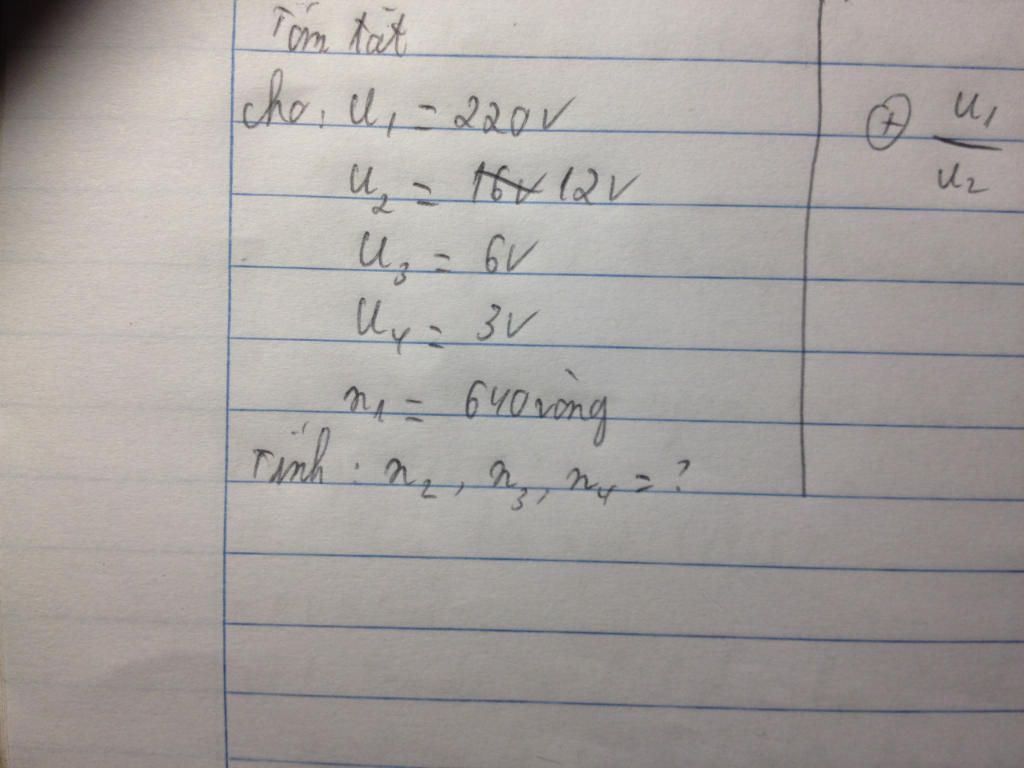 Tóm tắt
cho: U1 = 220V
U2 = 16V 12V
U3 = 6V
U4 = 3V
n1 = 640 vòng
Tính : n2, n3, n4 = ?
+ U1
U2